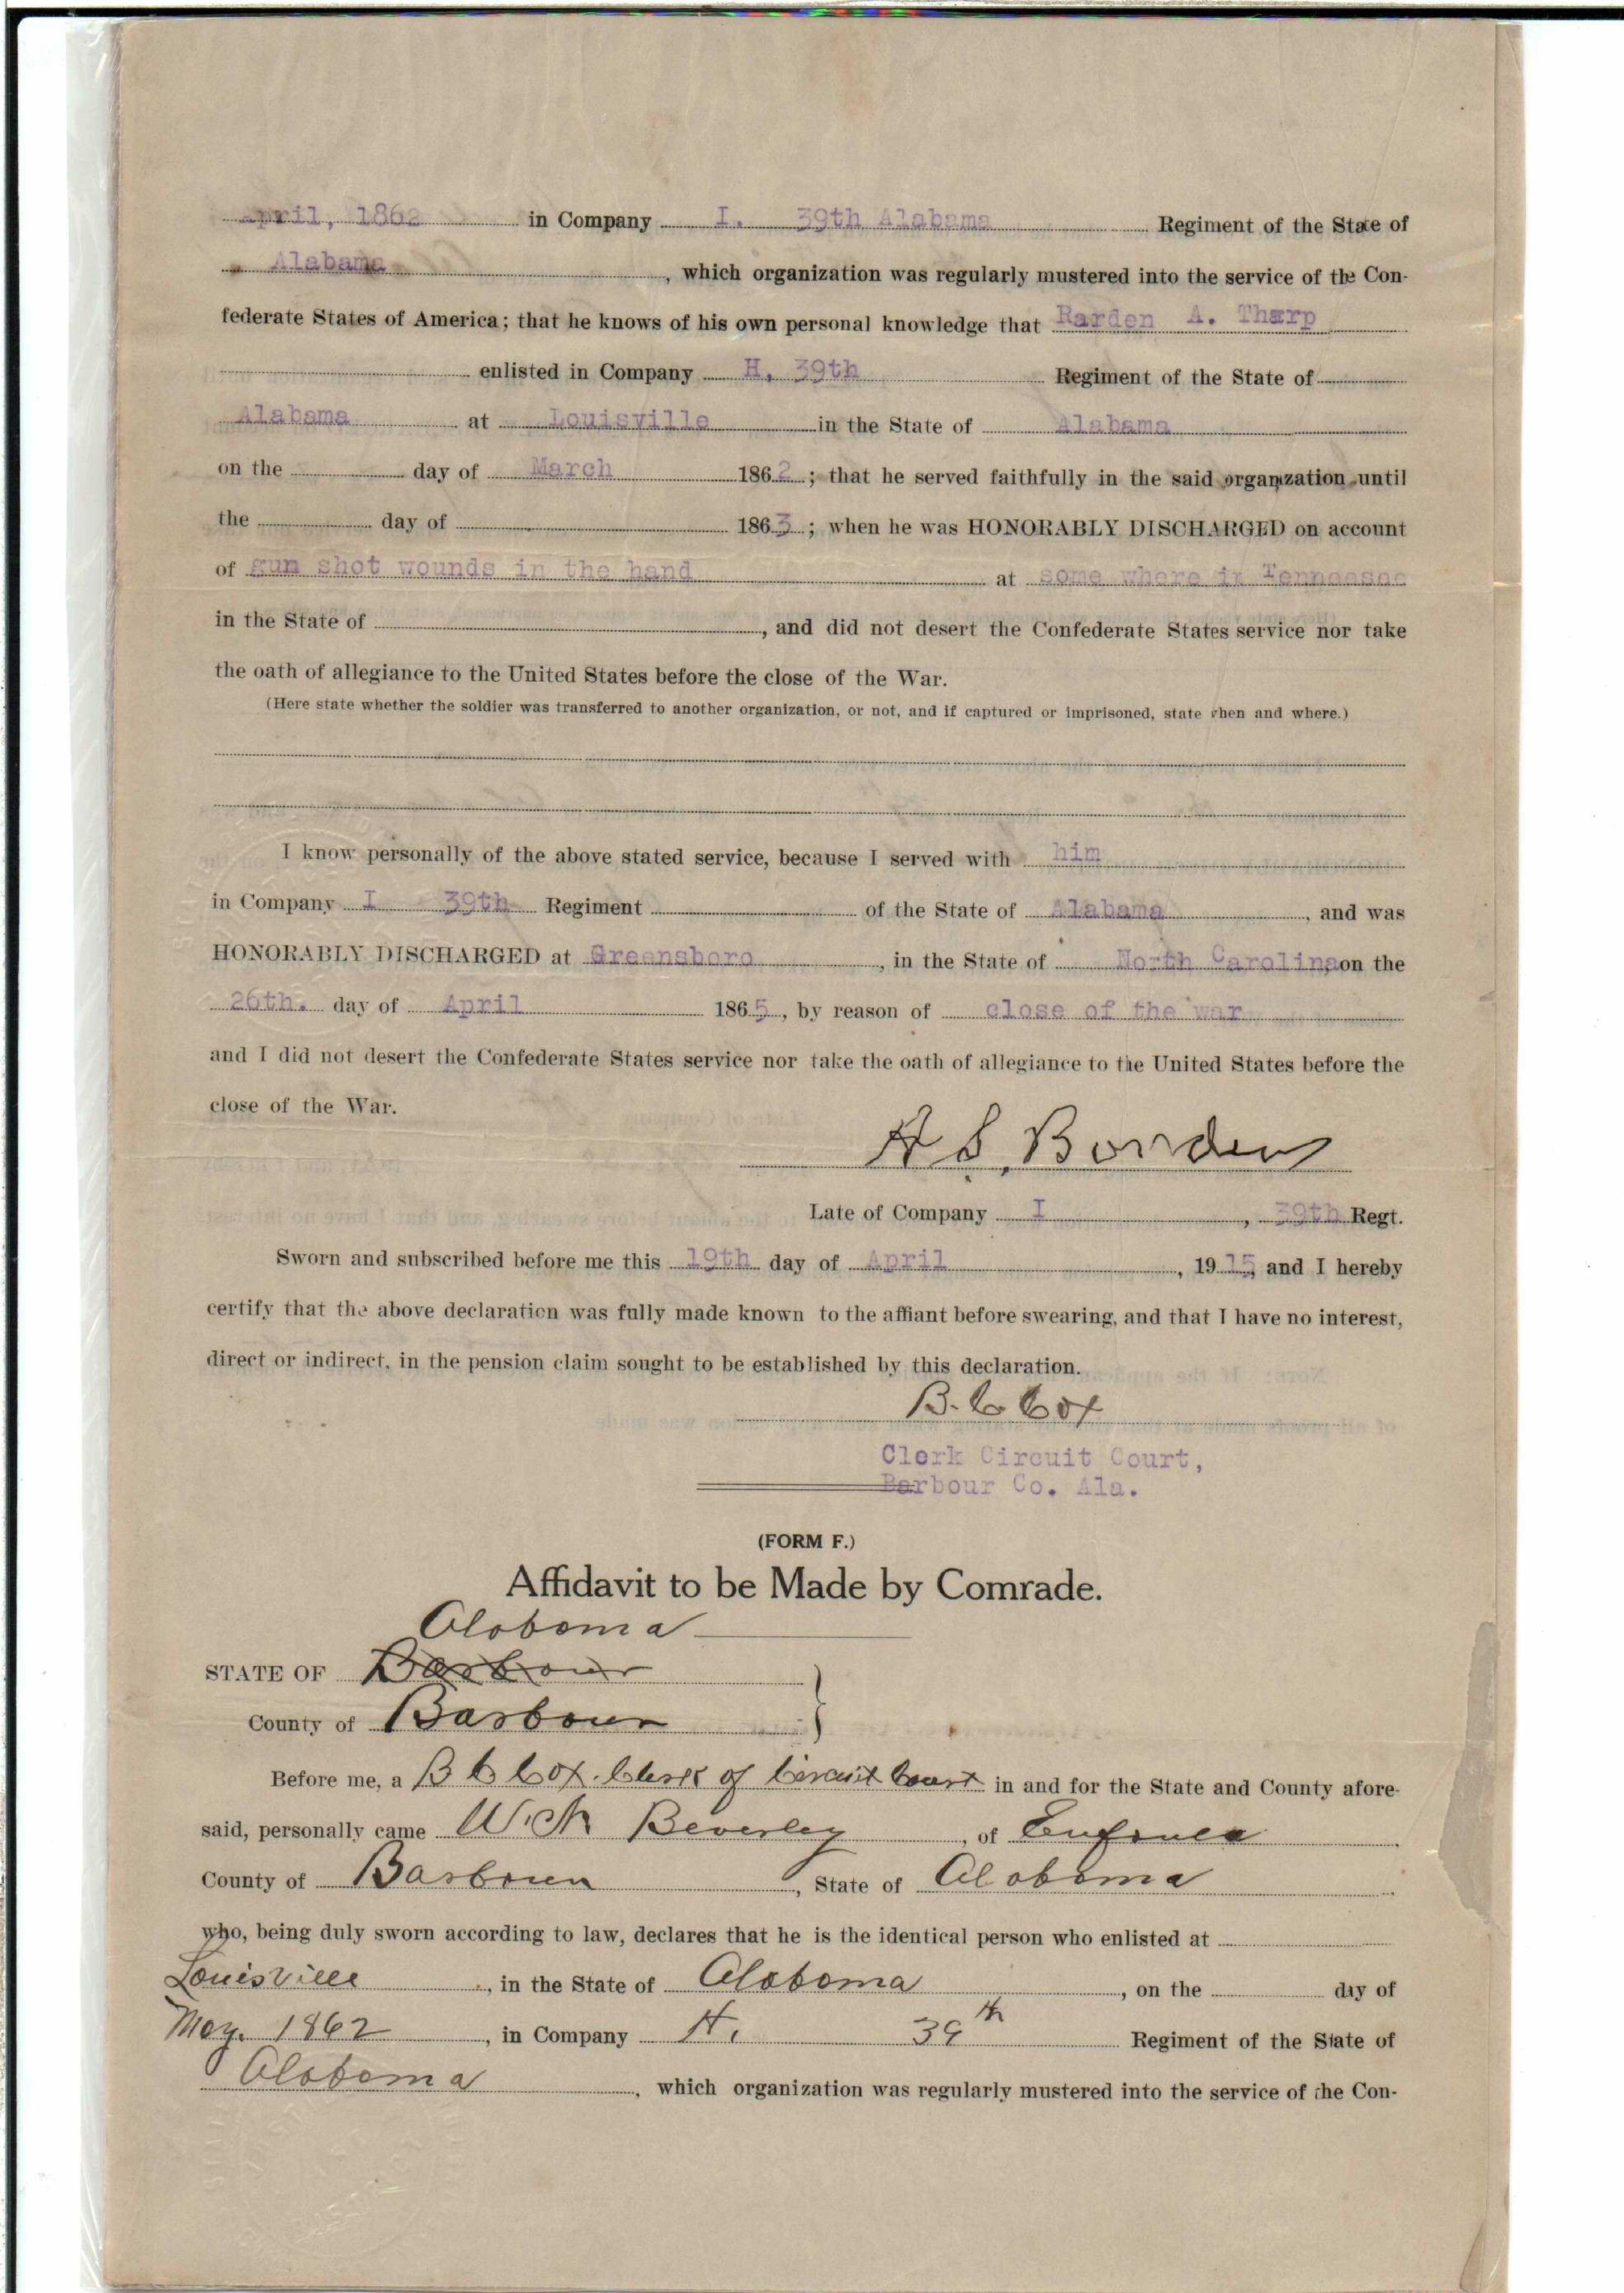 April, 1862 in Company I. 39th Alabama Regiment of the State of
Alabama, which organization was regularly mustered into the service of the Con-
federate States of America; that he knows of his own personal knowledge that Rarden A. Tharp
enlisted in Company H, 39th Regiment of the State of
Alabama at Louisville in the State of Alabama
on the day of March 1862; that he served faithfully in the said organization until
the day of 1863; when he was HONORABLY DISCHARGED on account
of gun shot wounds in the hand at some where in Tennessee
in the State of , and did not desert the Confederate States service nor take
the oath of allegiance to the United States before the close of the War.
(Here state whether the soldier was transferred to another organization, or not, and if captured or imprisoned, state when and where.)
I know personally of the above stated service, because I served with him
in Company I 39th Regiment of the State of Alabama, and was
HONORABLY DISCHARGED at Greensboro, in the State of North Carolina, on the
26th. day of April 1865, by reason of close of the war
and I did not desert the Confederate States service nor take the oath of allegiance to the United States before the
close of the War.
Late of Company I, 39th Regt.
Sworn and subscribed before me this 19th day of April, 1915, and I hereby
certify that the above declaration was fully made known to the affiant before swearing, and that I have no interest,
direct or indirect, in the pension claim sought to be established by this declaration.
B. C Cox
Clerk Circuit Court,
Barbour Co. Ala.
(FORM F.)
Affidavit to be Made by Comrade.
Alabama
STATE OF Barbour
County of Barbour
Before me, a B C Cox. Clerk of Circuit Court in and for the State and County afore-
said, personally came Beverley, of Eufaula
County of Barbour, State of Alabama
who, being duly sworn according to law, declares that he is the identical person who enlisted at
Louisville, in the State of Alabama, on the day of
May. 1862, in Company H, 39th Regiment of the State of
Alabama, which organization was regularly mustered into the service of the Con-